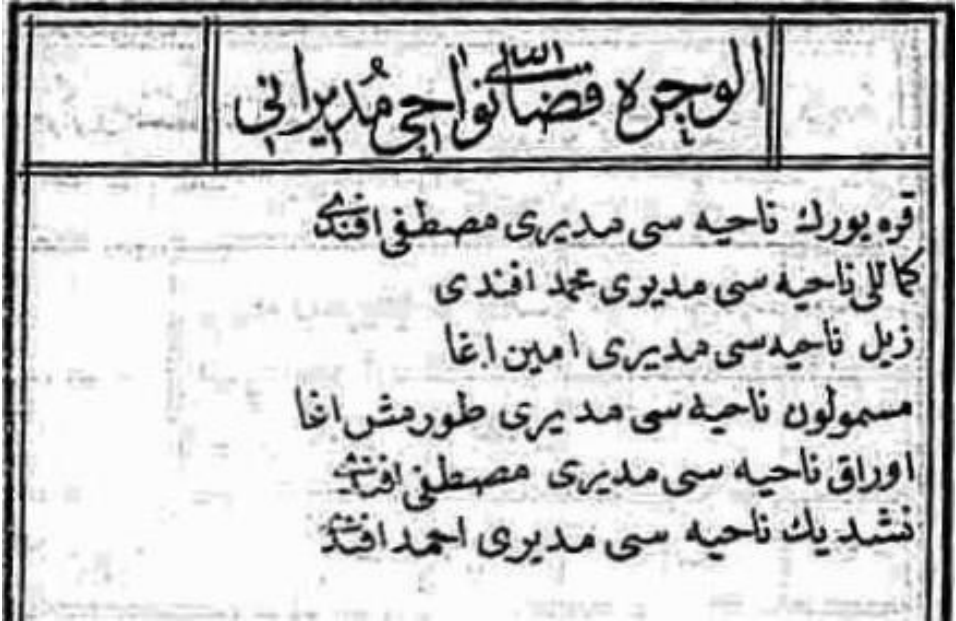 الوجره قضاسی نواحی مُدیرانی
قره یورك ناحیه سی مدیری مصطفی افندی
کماللی ناحیه سی مدیری محمد افندی
زیل ناحیه سی مدیری امین اغا
مسمولون ناحیه سی مدیری طورمش اغا
اوراق ناحیه سی مدیری مصطفی افندی
نشدیك ناحیه سی مدیری احمد افندی